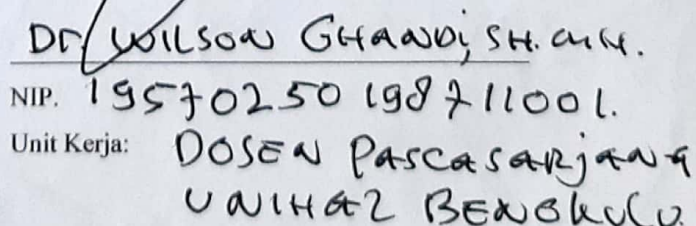 Dr. WILSON GHANDI, SH. MH.
NIP. 19570250 198711001.
Unit Kerja: DOSEN PASCASARJANA
UNIHAZ BENGKULU.